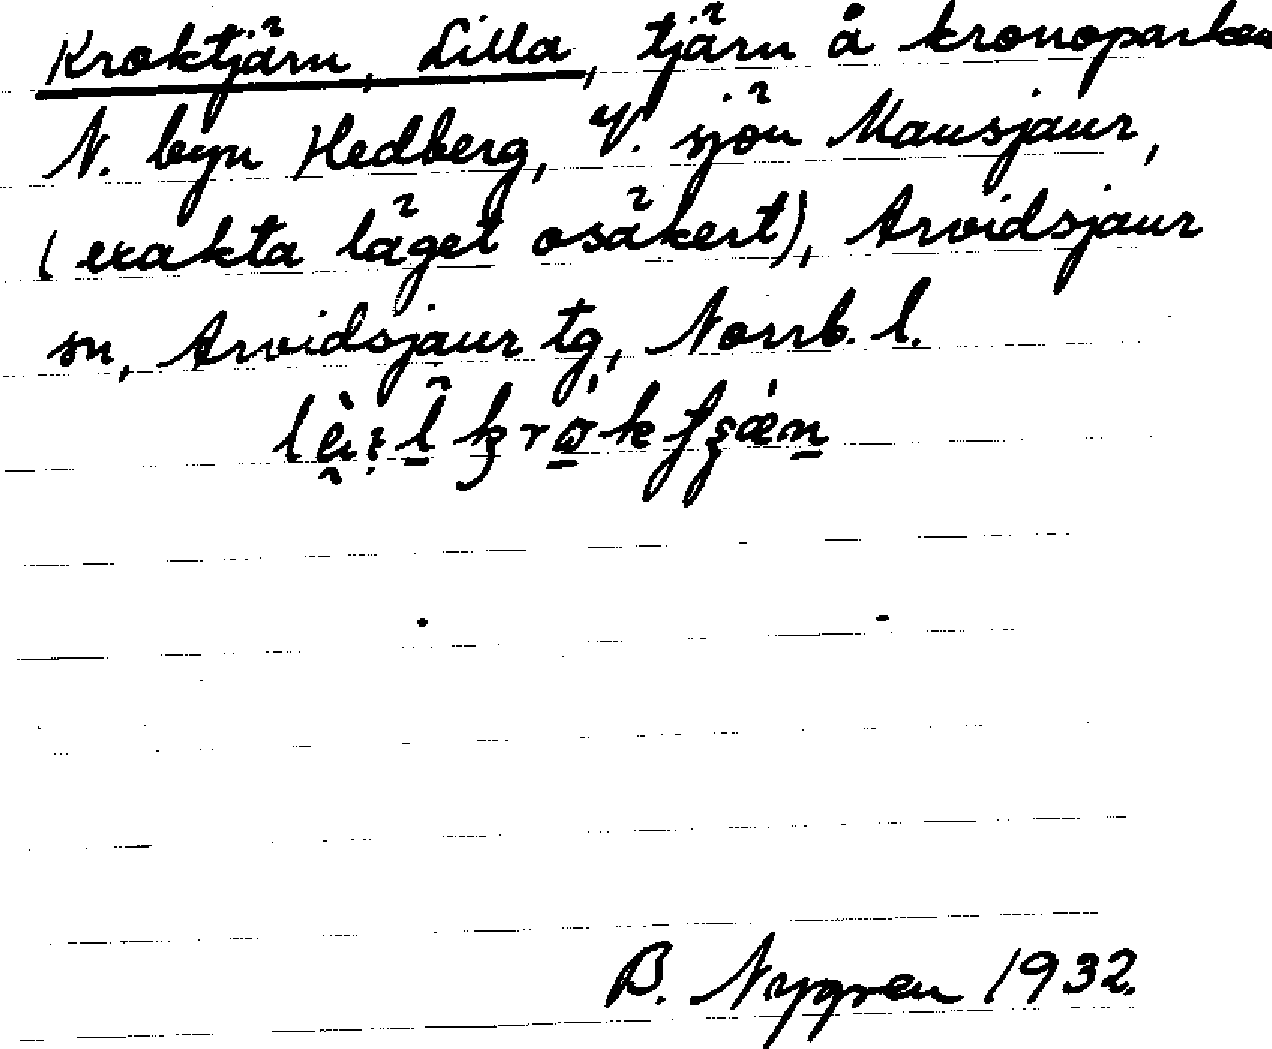 Kroktjärn, Lilla, tjärn å kronoparken
N. byn Hedberg, V. sjön Mausjaur,
(exakta läget osäkert), Arvidsjaur
sn, Arvidsjaur tg, Norrb. l.
B. Nygren 1932.